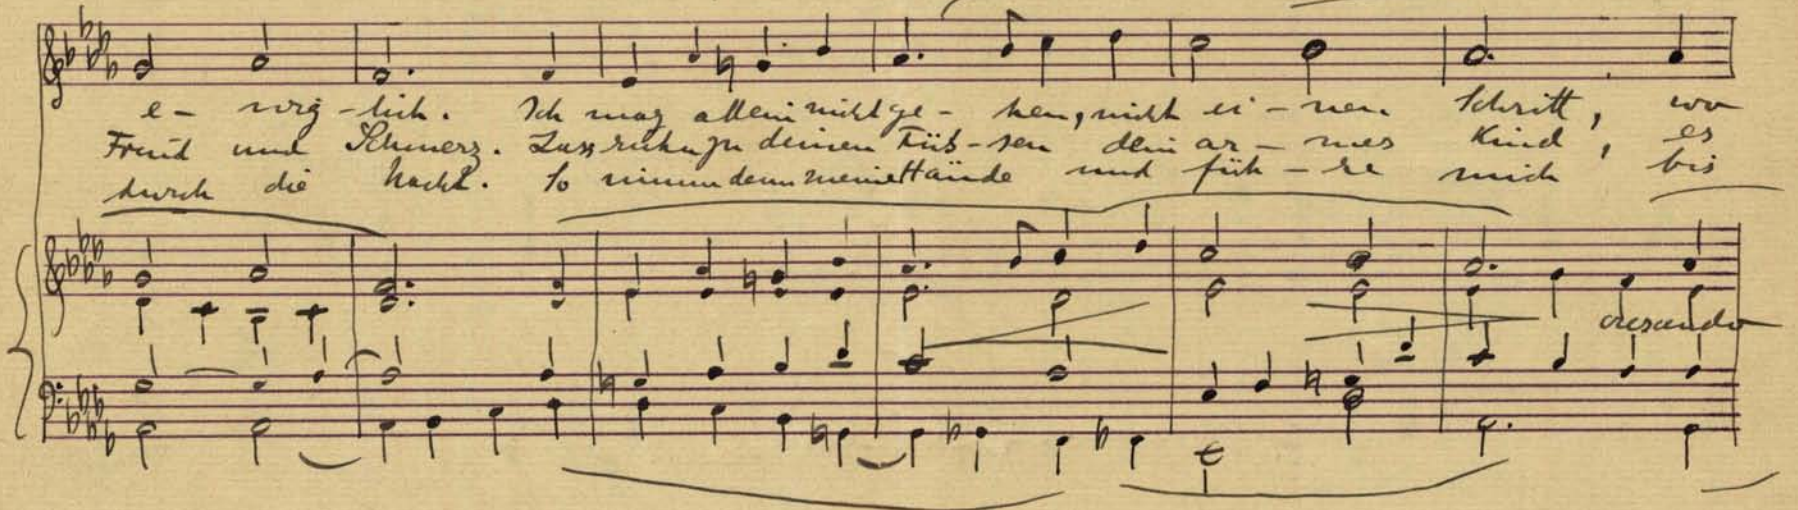 e- wig-lich. Ich mag allein nicht ge- hen, nicht ei- nen Schritt, wo
Freud und Schmerz. Lass ruhn zu deinen Füs-sen dein ar- mes Kind, es
durch die Nacht. So nimm denn meine Hände und füh- re mich bis
crescendo